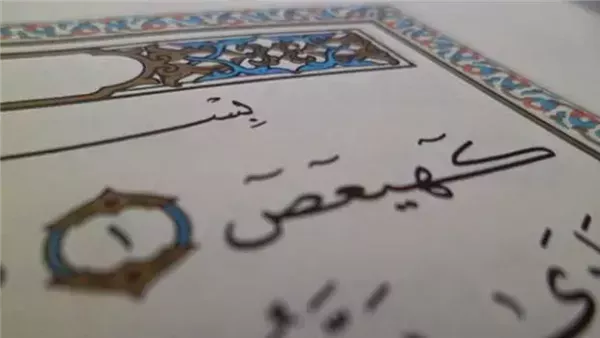 بِسـ
كٓهيعٓصٓ ١